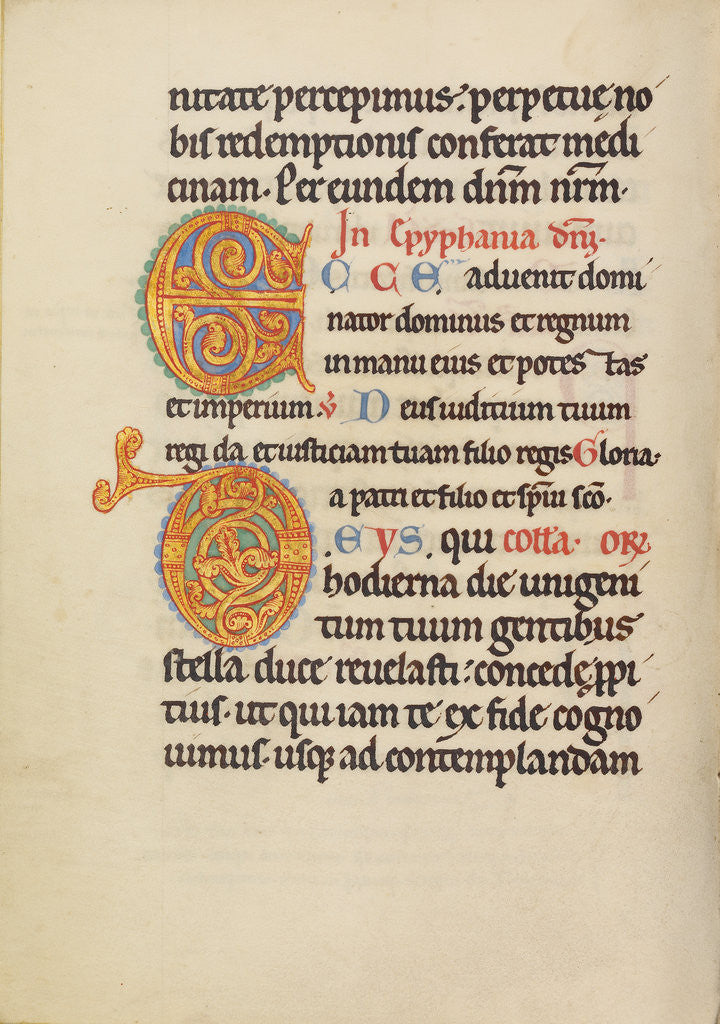 nitate percepimus: perpetuę no
bis redemptionis conferat medi
cinam. Per eundem dn̄m nr̄m.
In Epyphania dn̄i.
E C C E aduenit domi
nator dominus et regnum
in manu eius et potes tas
et imperium. v̄ D eus iuditium tuum
regi da et iusticiam tuam filio regis Gloria.
a patri et filio et sp̄iu sc̄o.
D EVS. qui coll̄a. OR̄
hodierna die unigeni
tum tuum gentibus
stella duce reuelasti: concedę ꝓpi
tius. ut qui iam te ex fide cogno
uimus. usqꝫ ad contemplandam